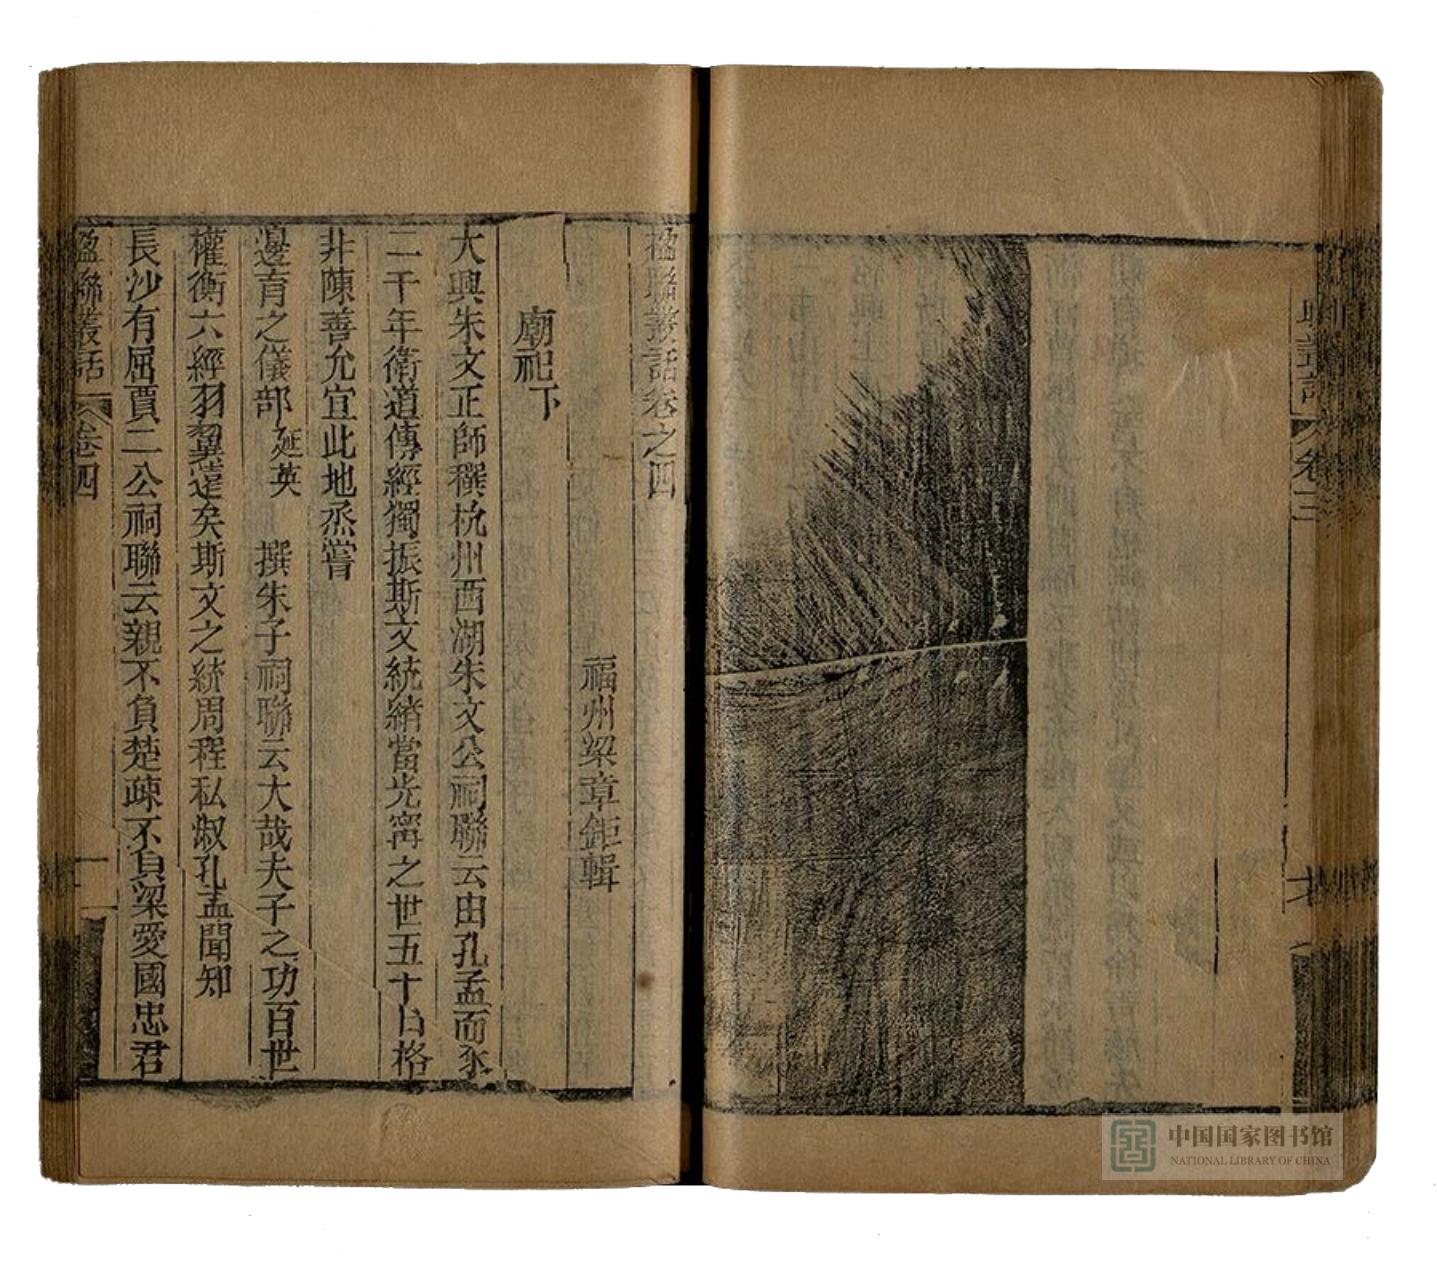 楹聯叢話卷之四
福州梁章鉅輯
廟祀下
大興朱文正師撰杭州西湖朱文公祠聯云由孔孟而來
二千年衛道傳經獨振斯文統緒當光甯之世五十日格
非陳善允宜此地烝嘗
邊育之儀部延英撰朱子祠聯云大哉夫子之功百世
權衡六經羽翼遠矣斯文之統周程私淑孔孟聞知
長沙有屈賈二公祠聯云親不負楚疎不負梁愛國忠君
楹聯叢話
卷四
一
中国国家图书馆
NATIONAL LIBRARY OF CHINA